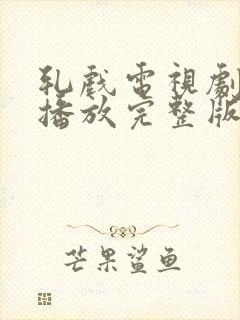 乳戲電視劇
播放完整版
芒果鲨鱼